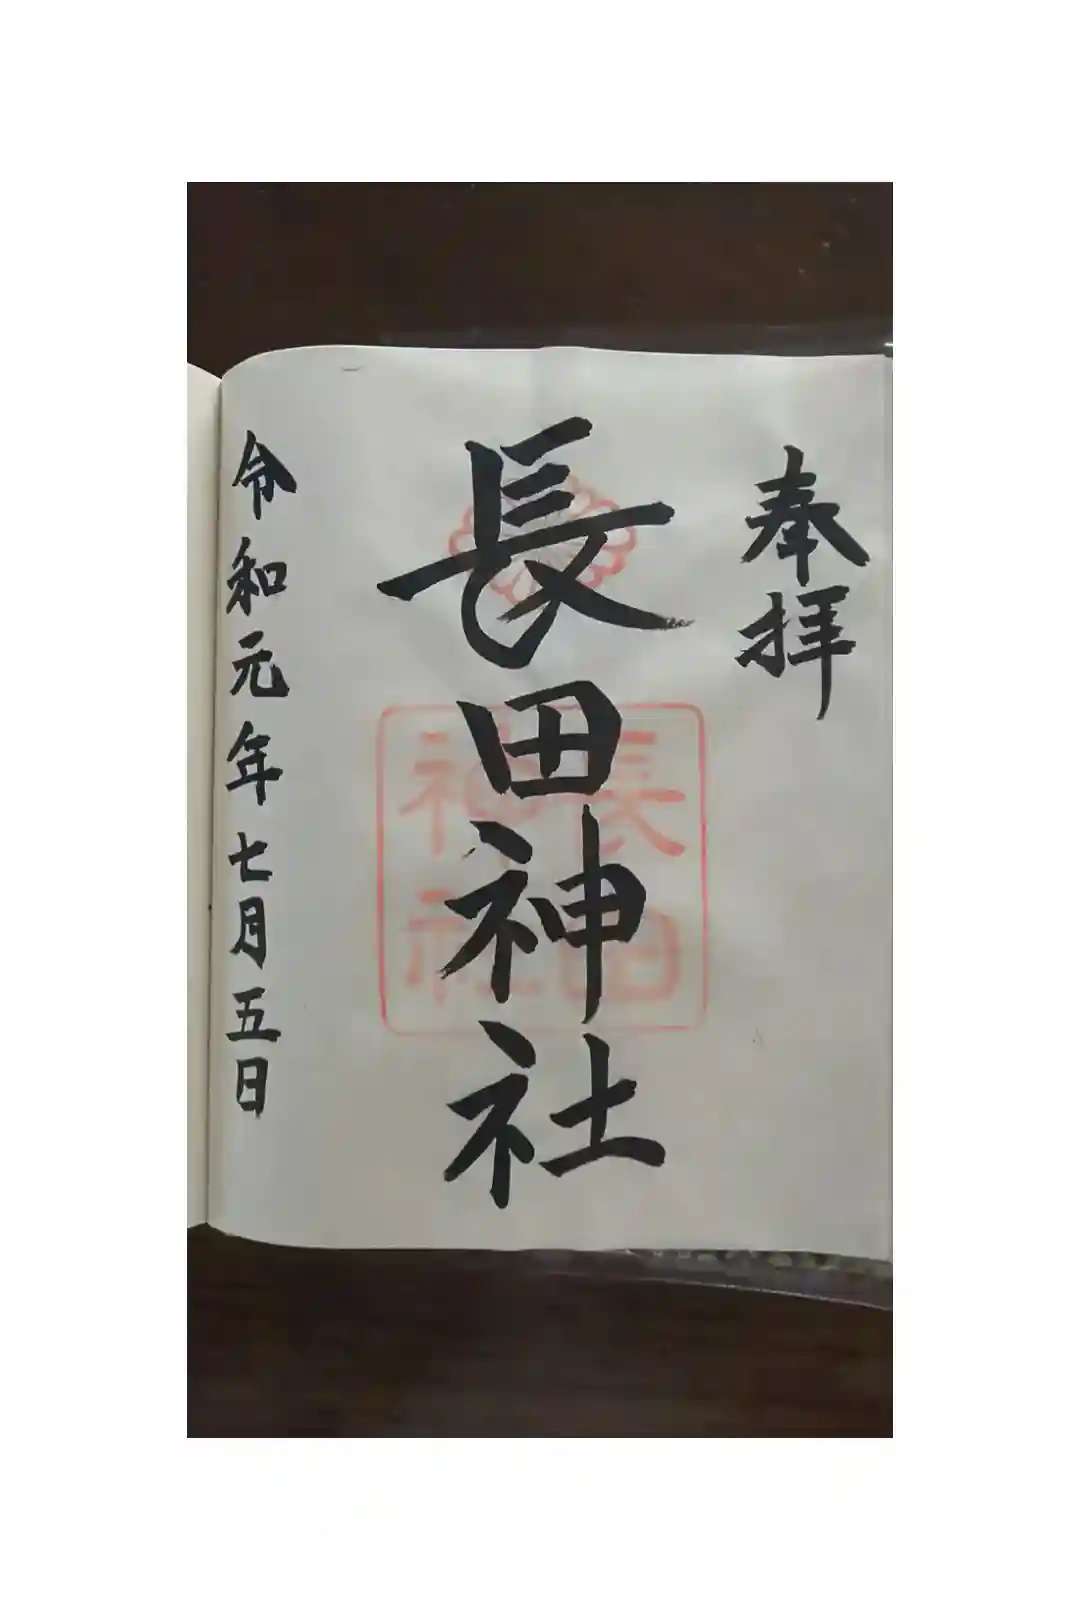 奉拝
長田神社
長田
神社
令和元年七月五日